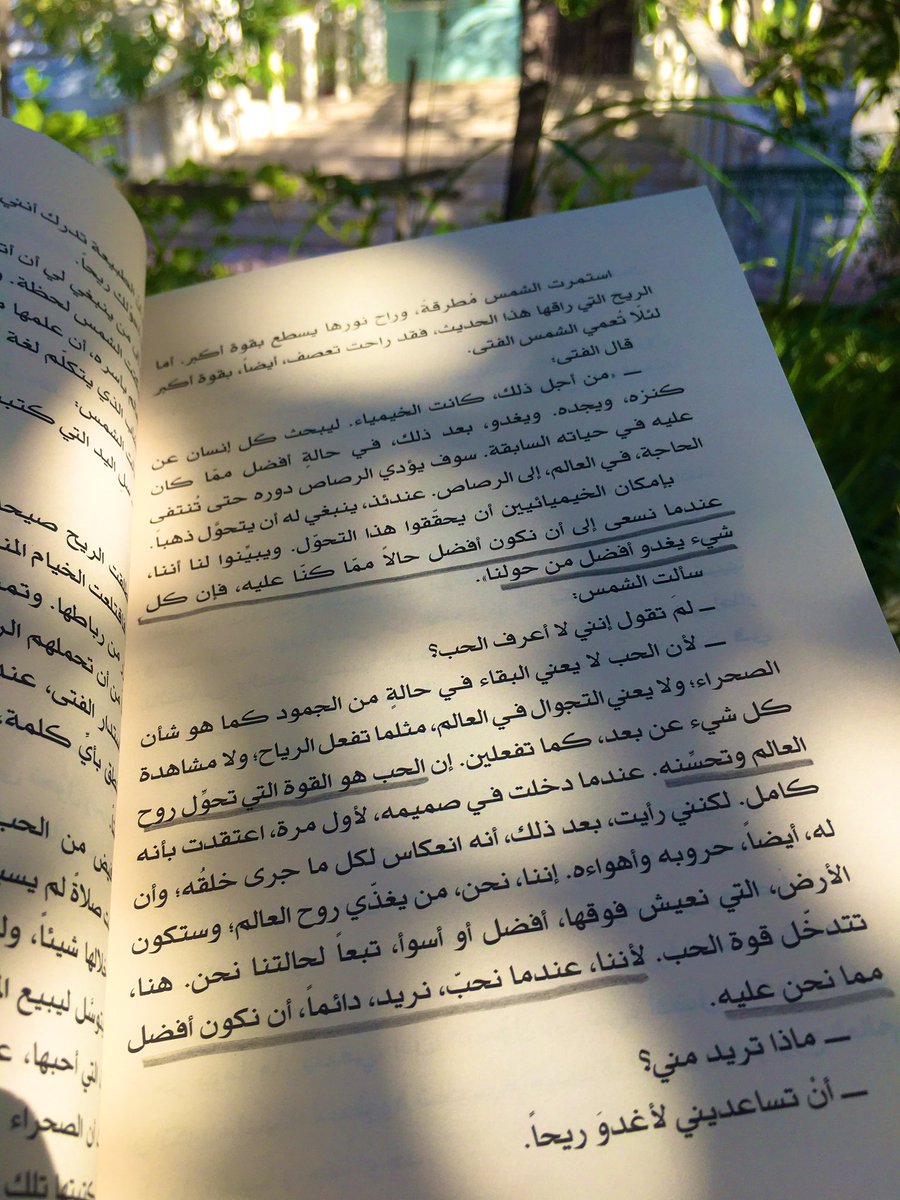 استمرت الشمس مُطرقةً، وراح نورها يسطع بقوة أكبر. أما
الريح التي راقها هذا الحديث، فقد راحت تعصف، أيضاً، بقوة أكبر
لئلّا تُعمي الشمس الفتى.
قال الفتى:
ـ «من أجل ذلك، كانت الخيمياء. ليبحث كل إنسان عن
كنزه، ويجده. ويغدو، بعد ذلك، في حالةٍ أفضل ممّا كان
عليه في حياته السابقة. سوف يؤدي الرصاص دوره حتى تُنتفى
الحاجة، في العالم، إلى الرصاص. عندئذ، ينبغي له أن يتحوَّل ذهباً.
بإمكان الخيميائيين أن يحقّقوا هذا التحوّل. ويبيّنوا لنا أننا،
عندما نسعى إلى أن نكون أفضل حالاً ممّا كنّا عليه، فإن كل
شيء يغدو أفضل من حولنا».
سألت الشمس:
ـ لمَ تقول إنني لا أعرف الحب؟
ـ لأن الحب لا يعني البقاء في حالةٍ من الجمود كما هو شأن
الصحراء؛ ولا يعني التجوال في العالم، مثلما تفعل الرياح؛ ولا مشاهدة
كل شيء عن بعد، كما تفعلين. إن الحب هو القوة التي تحوِّل روح
العالم وتحسِّنه. عندما دخلت في صميمه، لأول مرة، اعتقدت بأنه
كامل. لكنني رأيت، بعد ذلك، أنه انعكاس لكل ما جرى خلقُه؛ وأن
له، أيضاً، حروبه وأهواءه. إننا، نحن، من يغذّي روح العالم؛ وستكون
الأرض، التي نعيش فوقها، أفضل أو أسوأ، تبعاً لحالتنا نحن. هنا،
تتدخّل قوة الحب. لأننا، عندما نحبّ، نريد، دائماً، أن نكون أفضل
مما نحن عليه.
ـ ماذا تريد مني؟
ـ أنْ تساعديني لأغدوَ ريحاً.
الطبيعة تدرك أنني
ريحاً.
من ينبغي لي أن
الشمس لحظة.
بأسره، أن علمها
الذي يتكلّم لغة
الشمس:
اليد التي
الريح
الخيام
من رباطها.
من أن تحملهم
الفتى،
بأيّ كلمة،
من الحب
صلاةً لم
شيئاً،
ليبيع
التي أحبها،
أن الصحراء
كتبتها تلك